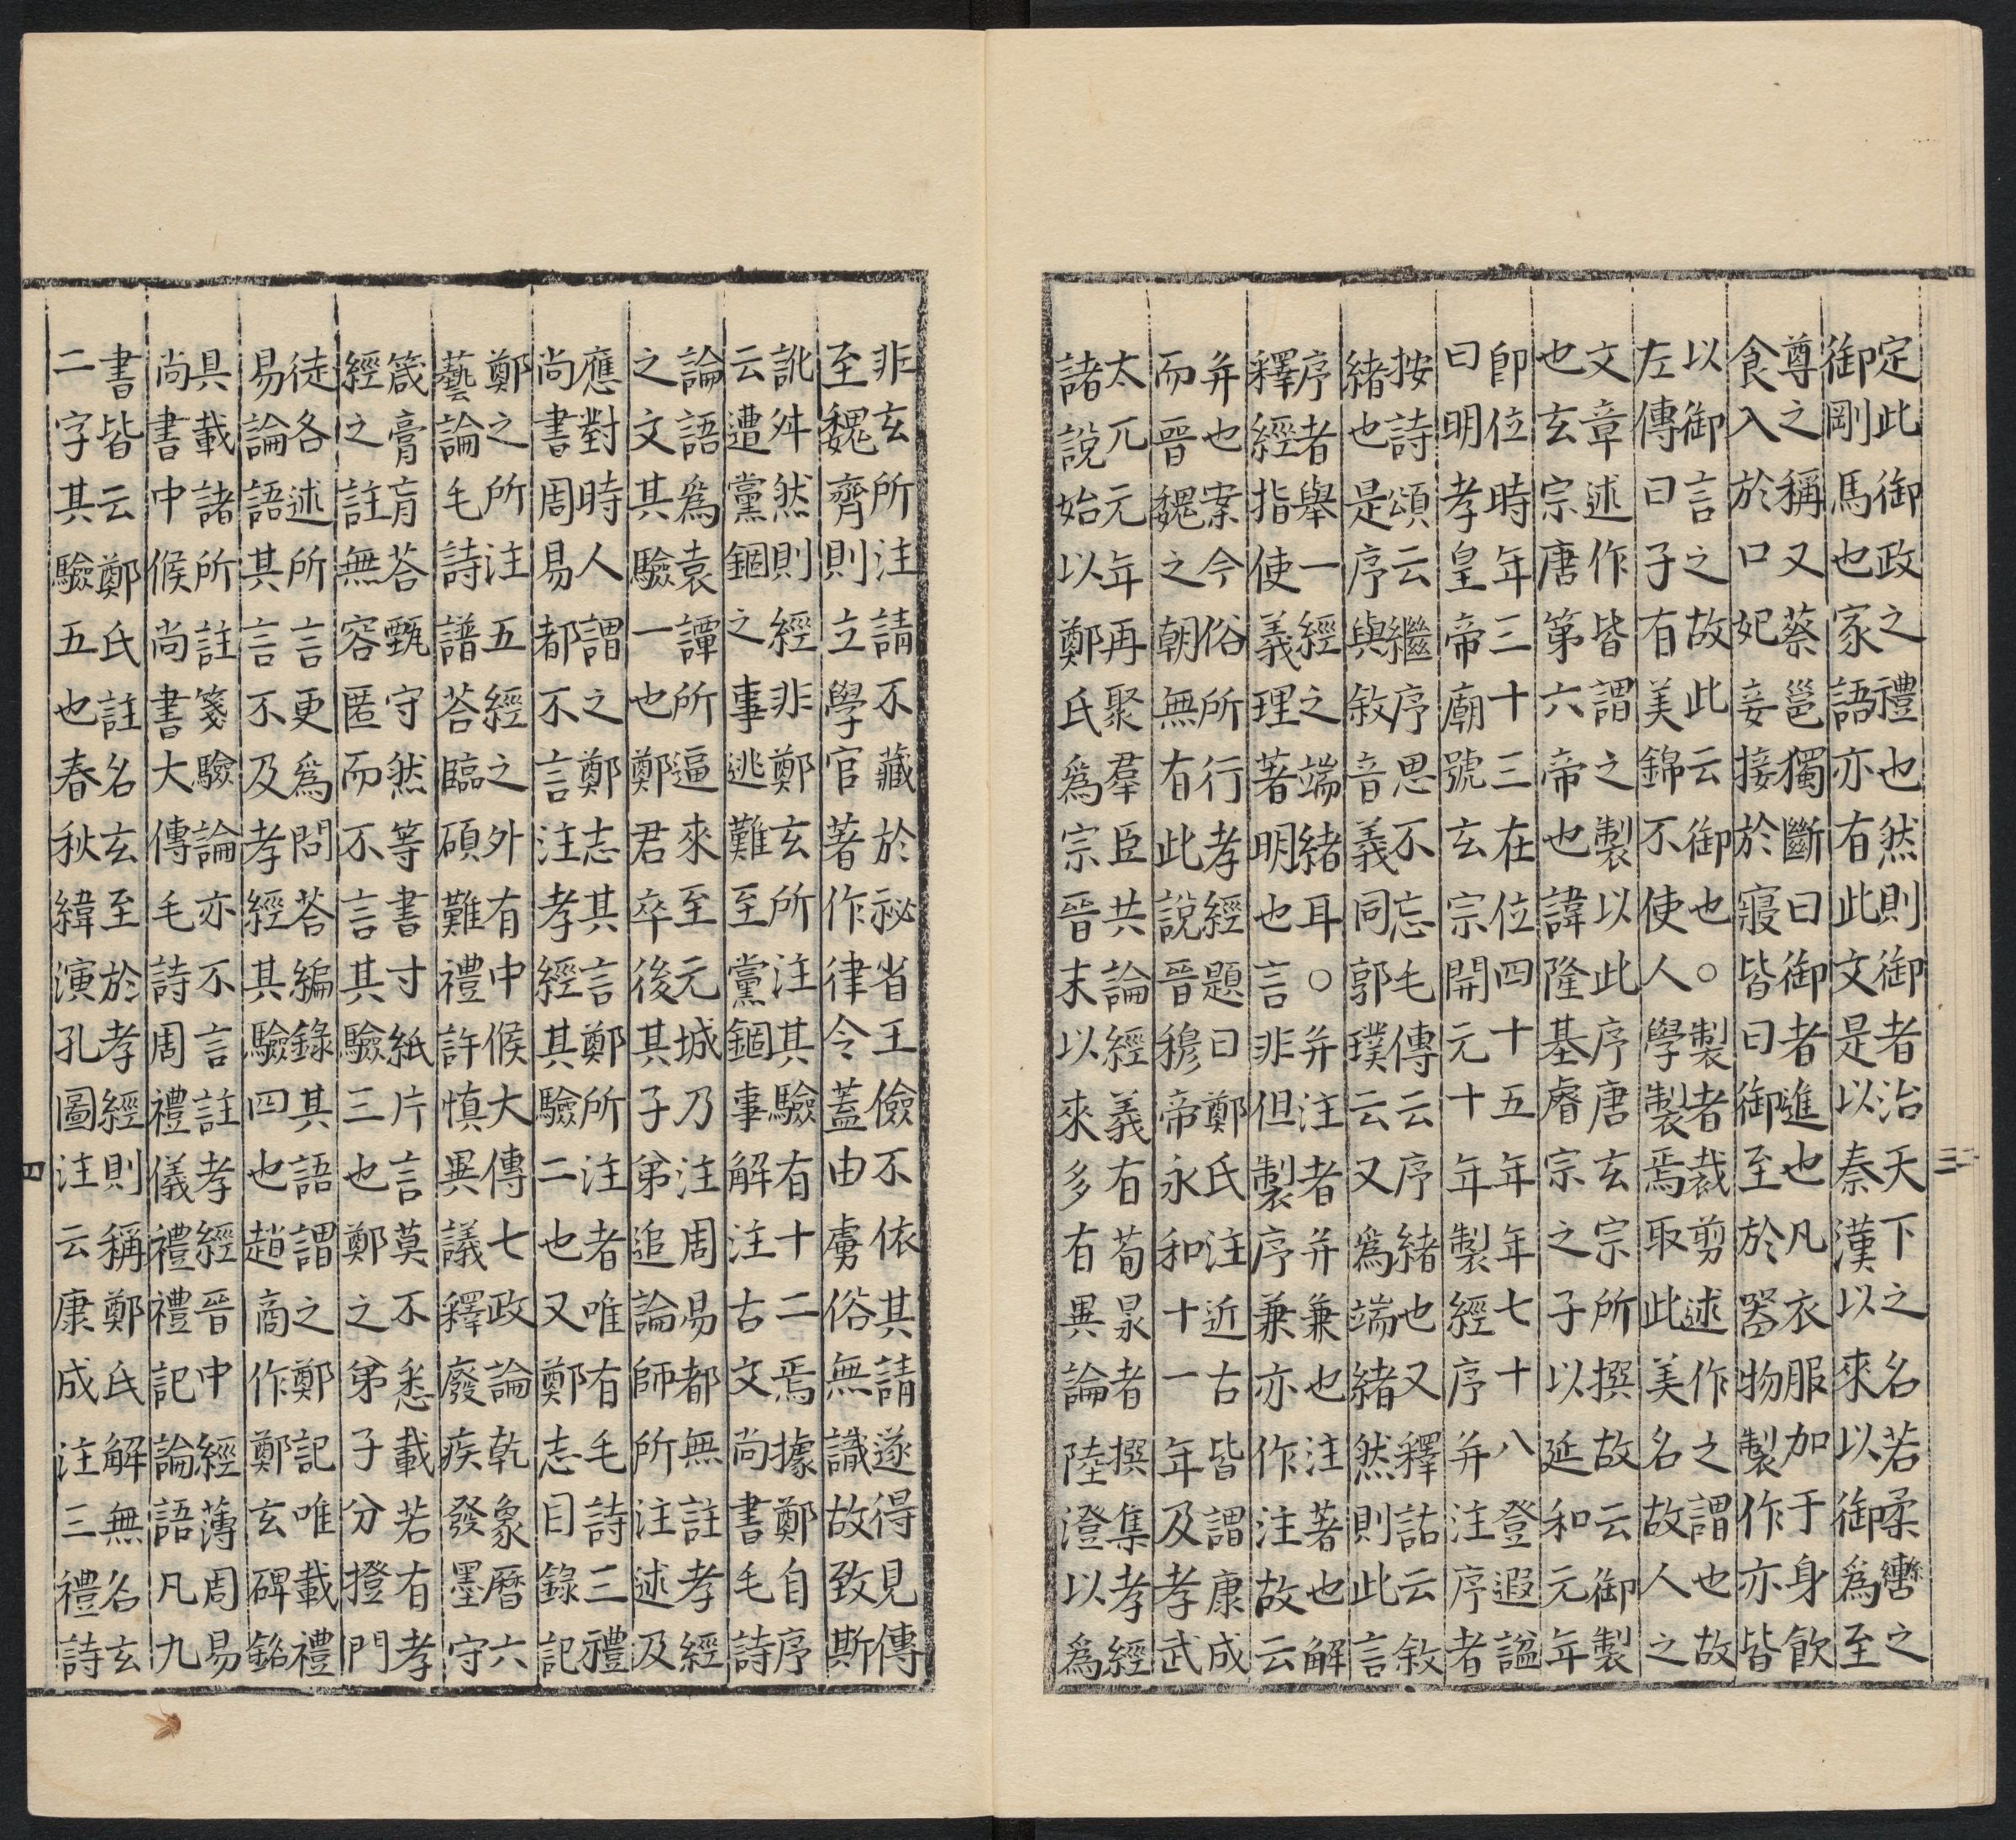 定此御政之禮也然則御者治天下之名若柔轡之
御剛馬也家語亦有此文是以秦漢以來以御爲至
尊之稱又蔡邕獨斷曰御者進也凡衣服加于身飲
食入於口妃妾接於寢皆曰御至於器物製作亦皆
以御言之故此云御也○製者裁剪述作之謂也故
左傳曰子有美錦不使人學製焉取此美名故人之
文章述作皆謂之製以此序唐玄宗所撰故云御製
也玄宗唐第六帝也諱隆基睿宗之子以延和元年
卽位時年三十三在位四十五年年七十八登遐謚
曰明孝皇帝廟號玄宗開元十年製經序并注序者
按詩頌云繼序思不忘毛傳云序緒也又釋詁云敘
緒也是序與敘音義同郭璞云又爲端緒然則此言
序者舉一經之端緒耳○并注者并兼也注著也解
釋經指使義理著明也言非但製序兼亦作注故云
并也案今俗所行孝經題曰鄭氏注近古皆謂康成
而晉魏之朝無有此說晉穆帝永和十一年及孝武
太元元年再聚羣臣共論經義有荀昶者撰集孝經
諸說始以鄭氏爲宗晉末以來多有異論陸澄以爲
三
非玄所注請不藏於祕省王儉不依其請遂得見傳
至魏齊則立學官著作律令蓋由虜俗無識故致斯
訛舛然則經非鄭玄所注其驗有十二焉據鄭自序
云遭黨錮之事逃難至黨錮事解注古文尚書毛詩
論語爲袁譚所逼來至元城乃注周易都無註孝經
之文其驗一也鄭君卒後其子弟追論師所注述及
應對時人謂之鄭志其言鄭所注者唯有毛詩三禮
尚書周易都不言注孝經其驗二也又鄭志目錄記
鄭之所注五經之外有中候大傳七政論乾象曆六
藝論毛詩譜荅臨碩難禮許慎異議釋廢疾發墨守
箴膏肓荅甄守然等書寸紙片言莫不悉載若有孝
經之註無容匿而不言其驗三也鄭之弟子分撜門
徒各述所言更爲問荅編錄其語謂之鄭記唯載禮
易論語其言不及孝經其驗四也趙商作鄭玄碑銘
具載諸所註箋驗論亦不言註孝經晉中經薄周易
尚書中候尚書大傳毛詩周禮儀禮禮記論語凡九
書皆云鄭氏註名玄至於孝經則稱鄭氏解無名玄
二字其驗五也春秋緯演孔圖注云康成注三禮詩
四